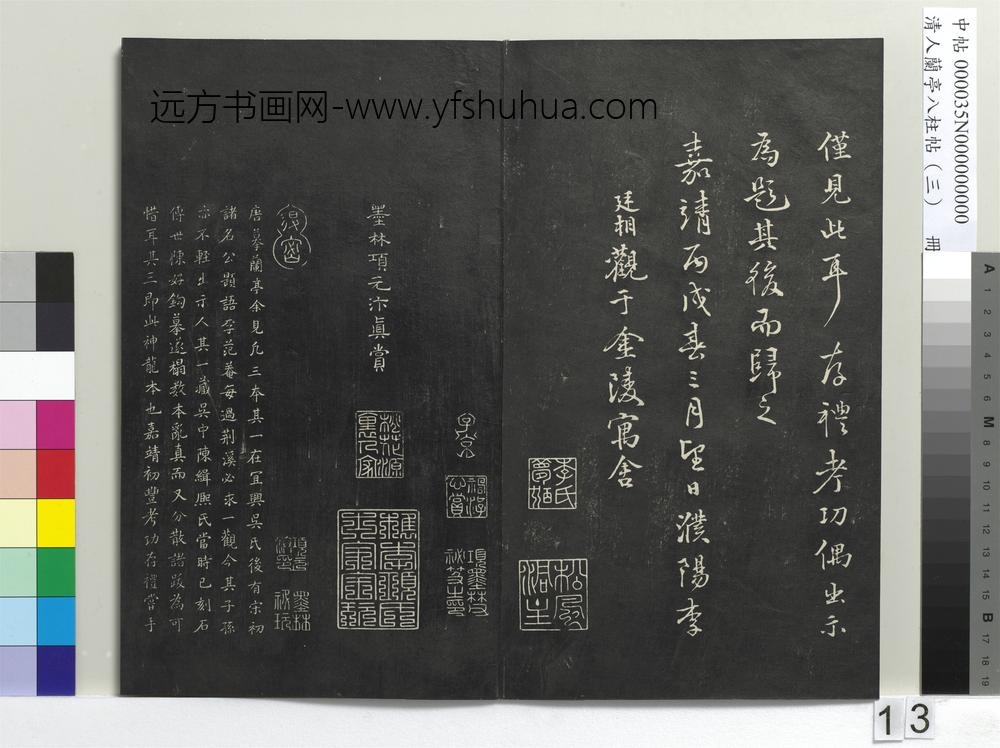 远方书画网-www.yfshuhua.com
中帖 000035N000000000
清人蘭亭八柱帖(三) 冊
僅見此耳存禮考功偶出示
為題其後而歸之
嘉靖丙戌春三月望日濮陽李
廷相觀于金陵寓舍
李氏
松風
子京
墨林項元汴真賞
唐摹蘭亭余見凡三本其一在宜興吳氏後有宋初
諸名公題語李范菴每過荊溪必求一觀今其子孫
亦不輕出示人其一藏吳中陳緝熙氏當時已刻石
傳世陳好鉤摹遂搨數本亂真而又分散諸跋為可
惜耳其三即此神龍本也嘉靖初豐考功存禮嘗手
A
1
2
3
4
5
6
M
8
9
10
11
12
13
14
15
B
17
18
19
13